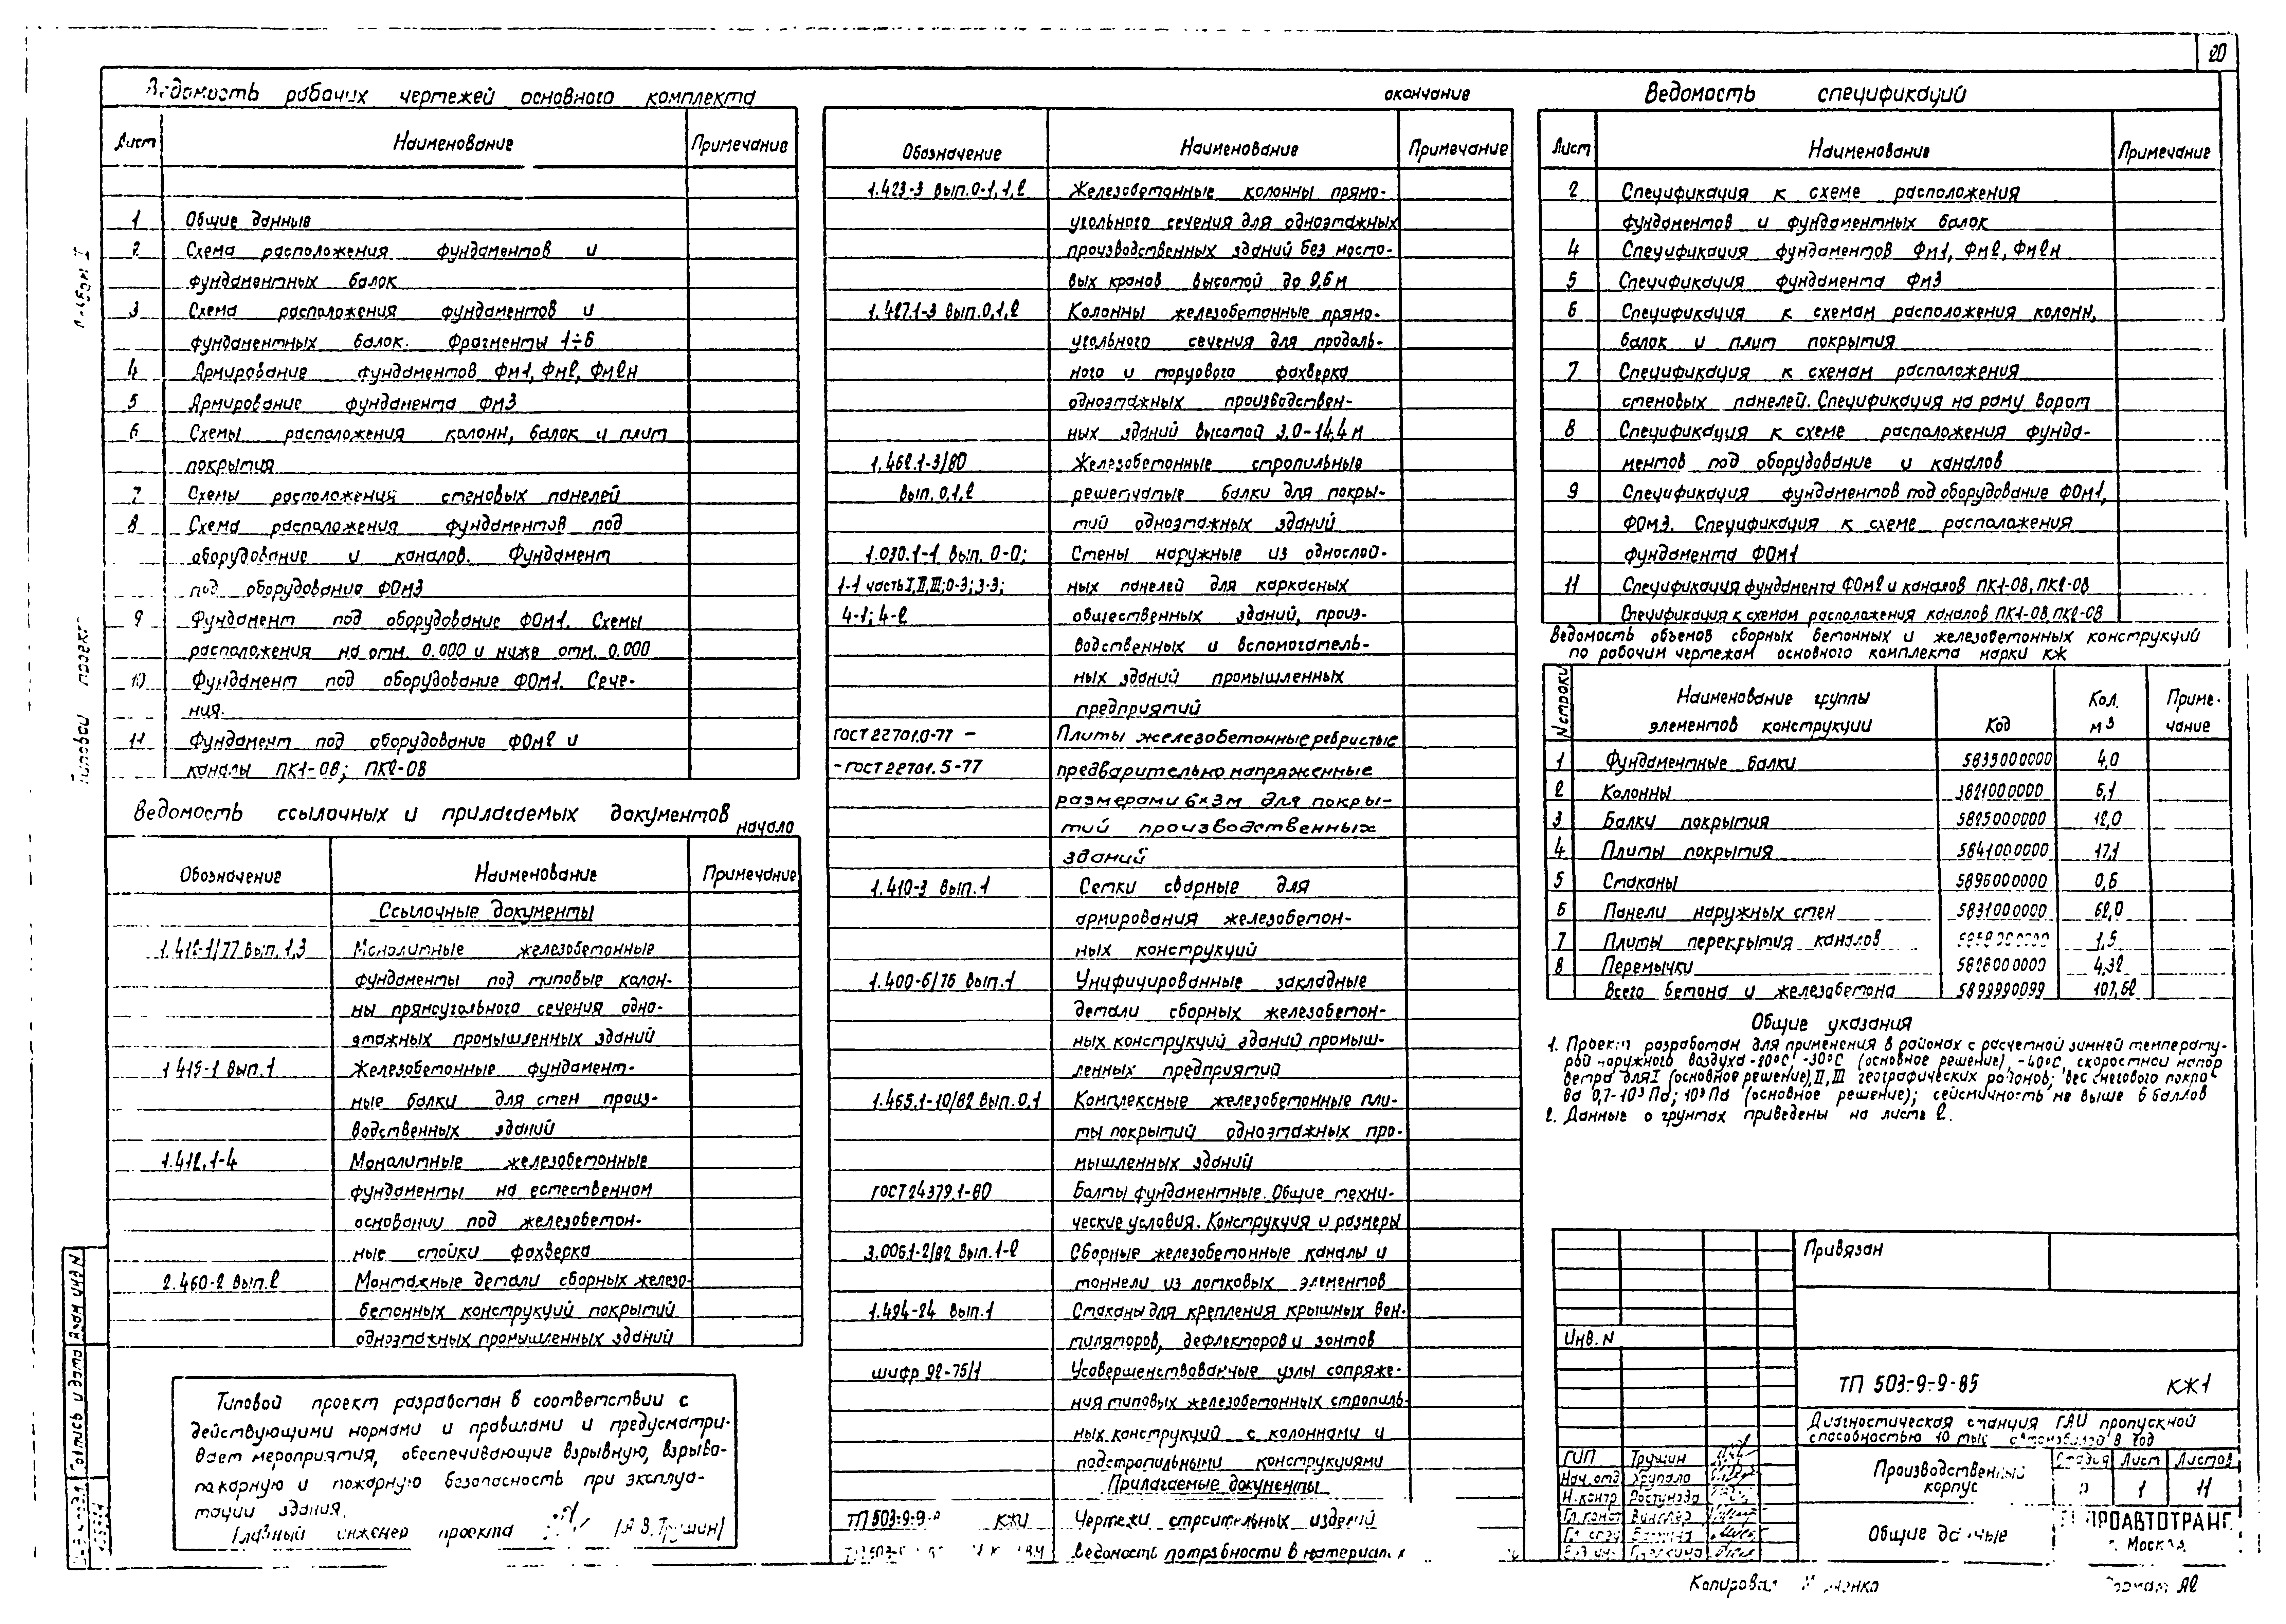 20
Ведомость рабочих чертежей основного комплекта
Лист Наименование Примечание
1 Общие данные
2 Схема расположения фундаментов и
фундаментных балок
3 Схема расположения фундаментов и
фундаментных балок. Фрагменты 1÷6
4 Армирование фундаментов Фм1, Фм2, Фм2н
5 Армирование фундамента Фм3
6 Схемы расположения колонн, балок и плит
покрытия
7 Схемы расположения стеновых панелей
8 Схема расположения фундаментов под
оборудование и каналов. Фундамент
под оборудование ФОм3
9 Фундамент под оборудование ФОм1. Схемы
расположения на отм. 0.000 и ниже отм. 0.000
10 Фундамент под оборудование ФОм1. Сече-
ния.
11 Фундамент под оборудование ФОм2 и
каналы ПК1-ОВ; ПК2-ОВ
Ведомость ссылочных и прилагаемых документов
начало
Обозначение Наименование Примечание
Ссылочные документы
1.412-1/77 вып. 1,3 Монолитные железобетонные
фундаменты под типовые колон-
ны прямоугольного сечения одно-
этажных промышленных зданий
1.415-1 вып.1 Железобетонные фундамент-
ные балки для стен произ-
водственных зданий
1.412.1-4 Монолитные железобетонные
фундаменты на естественном
основании под железобетон-
ные стойки фахверка
2.460-2 вып.2 Монтажные детали сборных железо-
бетонных конструкций покрытий
одноэтажных промышленных зданий
Типовой проект разработан в соответствии с
действующими нормами и правилами и предусматри-
вает мероприятия, обеспечивающие взрывную, взрыво-
пожарную и пожарную безопасность при эксплуа-
тации здания.
Главный инженер проекта /А.В.Трушин/
окончание
Обозначение Наименование Примечание
1.423-3 вып.0-1,1,2 Железобетонные колонны прямо-
угольного сечения для одноэтажных
производственных зданий без мосто-
вых кранов высотой до 9,6м
1.427.1-3 вып.0,1,2 Колонны железобетонные прямо-
угольного сечения для продоль-
ного и торцового фахверка
одноэтажных производствен-
ных зданий высотой 3,0-14,4м
1.462.1-3/80 Железобетонные стропильные
вып. 0,1,2 решетчатые балки для покры-
тий одноэтажных зданий
1.030.1-1 вып. 0-0; Стены наружные из однослой-
1-1 часть I,II,III; 0-3; 3-3; ных панелей для каркасных
4-1; 4-2 общественных зданий, произ-
водственных и вспомогатель-
ных зданий промышленных
предприятий
ГОСТ 22701.0-77 - Плиты железобетонные ребристые
-ГОСТ 22701.5-77 предварительно напряженные
размерами 6×3м для покры-
тий производственных
зданий
1.410-3 вып.1 Сетки сварные для
армирования железобетон-
ных конструкций
1.400-6/76 вып.1 Унифицированные закладные
детали сборных железобетон-
ных конструкций зданий промыш-
ленных предприятий
1.465.1-10/82 вып.0,1 Комплексные железобетонные пли-
ты покрытий одноэтажных про-
мышленных зданий
ГОСТ 24379.1-80 Болты фундаментные. Общие техни-
ческие условия. Конструкция и размеры
3.006.1-2/82 вып.1-2 Сборные железобетонные каналы и
тоннели из лотковых элементов
1.494-24 вып.1 Стаканы для крепления крышных вен-
тиляторов, дефлекторов и зонтов
шифр 92-75/1 Усовершенствованные узлы сопряже-
ния типовых железобетонных стропиль-
ных конструкций с колоннами и
подстропильными конструкциями
Прилагаемые документы
ТП 503-9-9 КЖИ Чертежи строительных изделий
Ведомость потребности в материалах
Ведомость спецификаций
Лист Наименование Примечание
2 Спецификация к схеме расположения
фундаментов и фундаментных балок
4 Спецификация фундаментов Фм1, Фм2, Фм2н
5 Спецификация фундамента Фм3
6 Спецификация к схемам расположения колонн,
балок и плит покрытия
7 Спецификация к схемам расположения
стеновых панелей. Спецификация на раму ворот
8 Спецификация к схеме расположения фунда-
ментов под оборудование и каналов
9 Спецификация фундаментов под оборудование ФОм1,
ФОм3. Спецификация к схеме расположения
фундамента ФОм1
11 Спецификация фундамента ФОм2 и каналов ПК1-ОВ, ПК2-ОВ
Спецификация к схемам расположения каналов ПК1-ОВ, ПК2-ОВ
Ведомость объемов сборных бетонных и железобетонных конструкций
по рабочим чертежам основного комплекта марки КЖ
N строки Наименование группы элементов конструкции Код Кол. м3 Приме-чание
1 Фундаментные балки 5835000000 4,0
2 Колонны 5821000000 6,1
3 Балки покрытия 5825000000 12,0
4 Плиты покрытия 5841000000 17,1
5 Стаканы 5896000000 0,6
6 Панели наружных стен 5831000000 62,0
7 Плиты перекрытия каналов 1,5
8 Перемычки 5828000000 4,32
Всего бетона и железобетона 5899990099 107,62
Общие указания
1. Проект разработан для применения в районах с расчетной зимней температу-
рой наружного воздуха -20°С, -30°С (основное решение), -40°С, скоростной напор
ветра для I (основное решение), II, III географических районов; вес снегового покро-
ва 0,7·10³ Па; 10³ Па (основное решение); сейсмичность не выше 6 баллов
2. Данные о грунтах приведены на листе 2.
Привязан
Инв. N
ТП 503-9-9-85 КЖ1
Диагностическая станция ГАИ пропускной
способностью 10 тыс. автомобилей в год
ГИП Трушин
Нач. отд Хрипало
Н. контр
Производственный корпус
Стадия Лист Листов
Р 1 11
Общие данные
ГИПРОАВТОТРАНС
г. Москва
Копировал
Формат А2
Альбом I
Типовой проект
Подпись и дата
Взам инв N